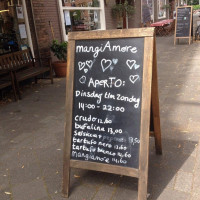 mangiAmore
APERTO:
Dinsdag t/m Zondag
14:00 - 22:00
crudo 12,60
bufalina 13,00
salsiccia 13,50
tartufo nero 13,60
tartufo bianco 14,60
Mangiamore 14,60